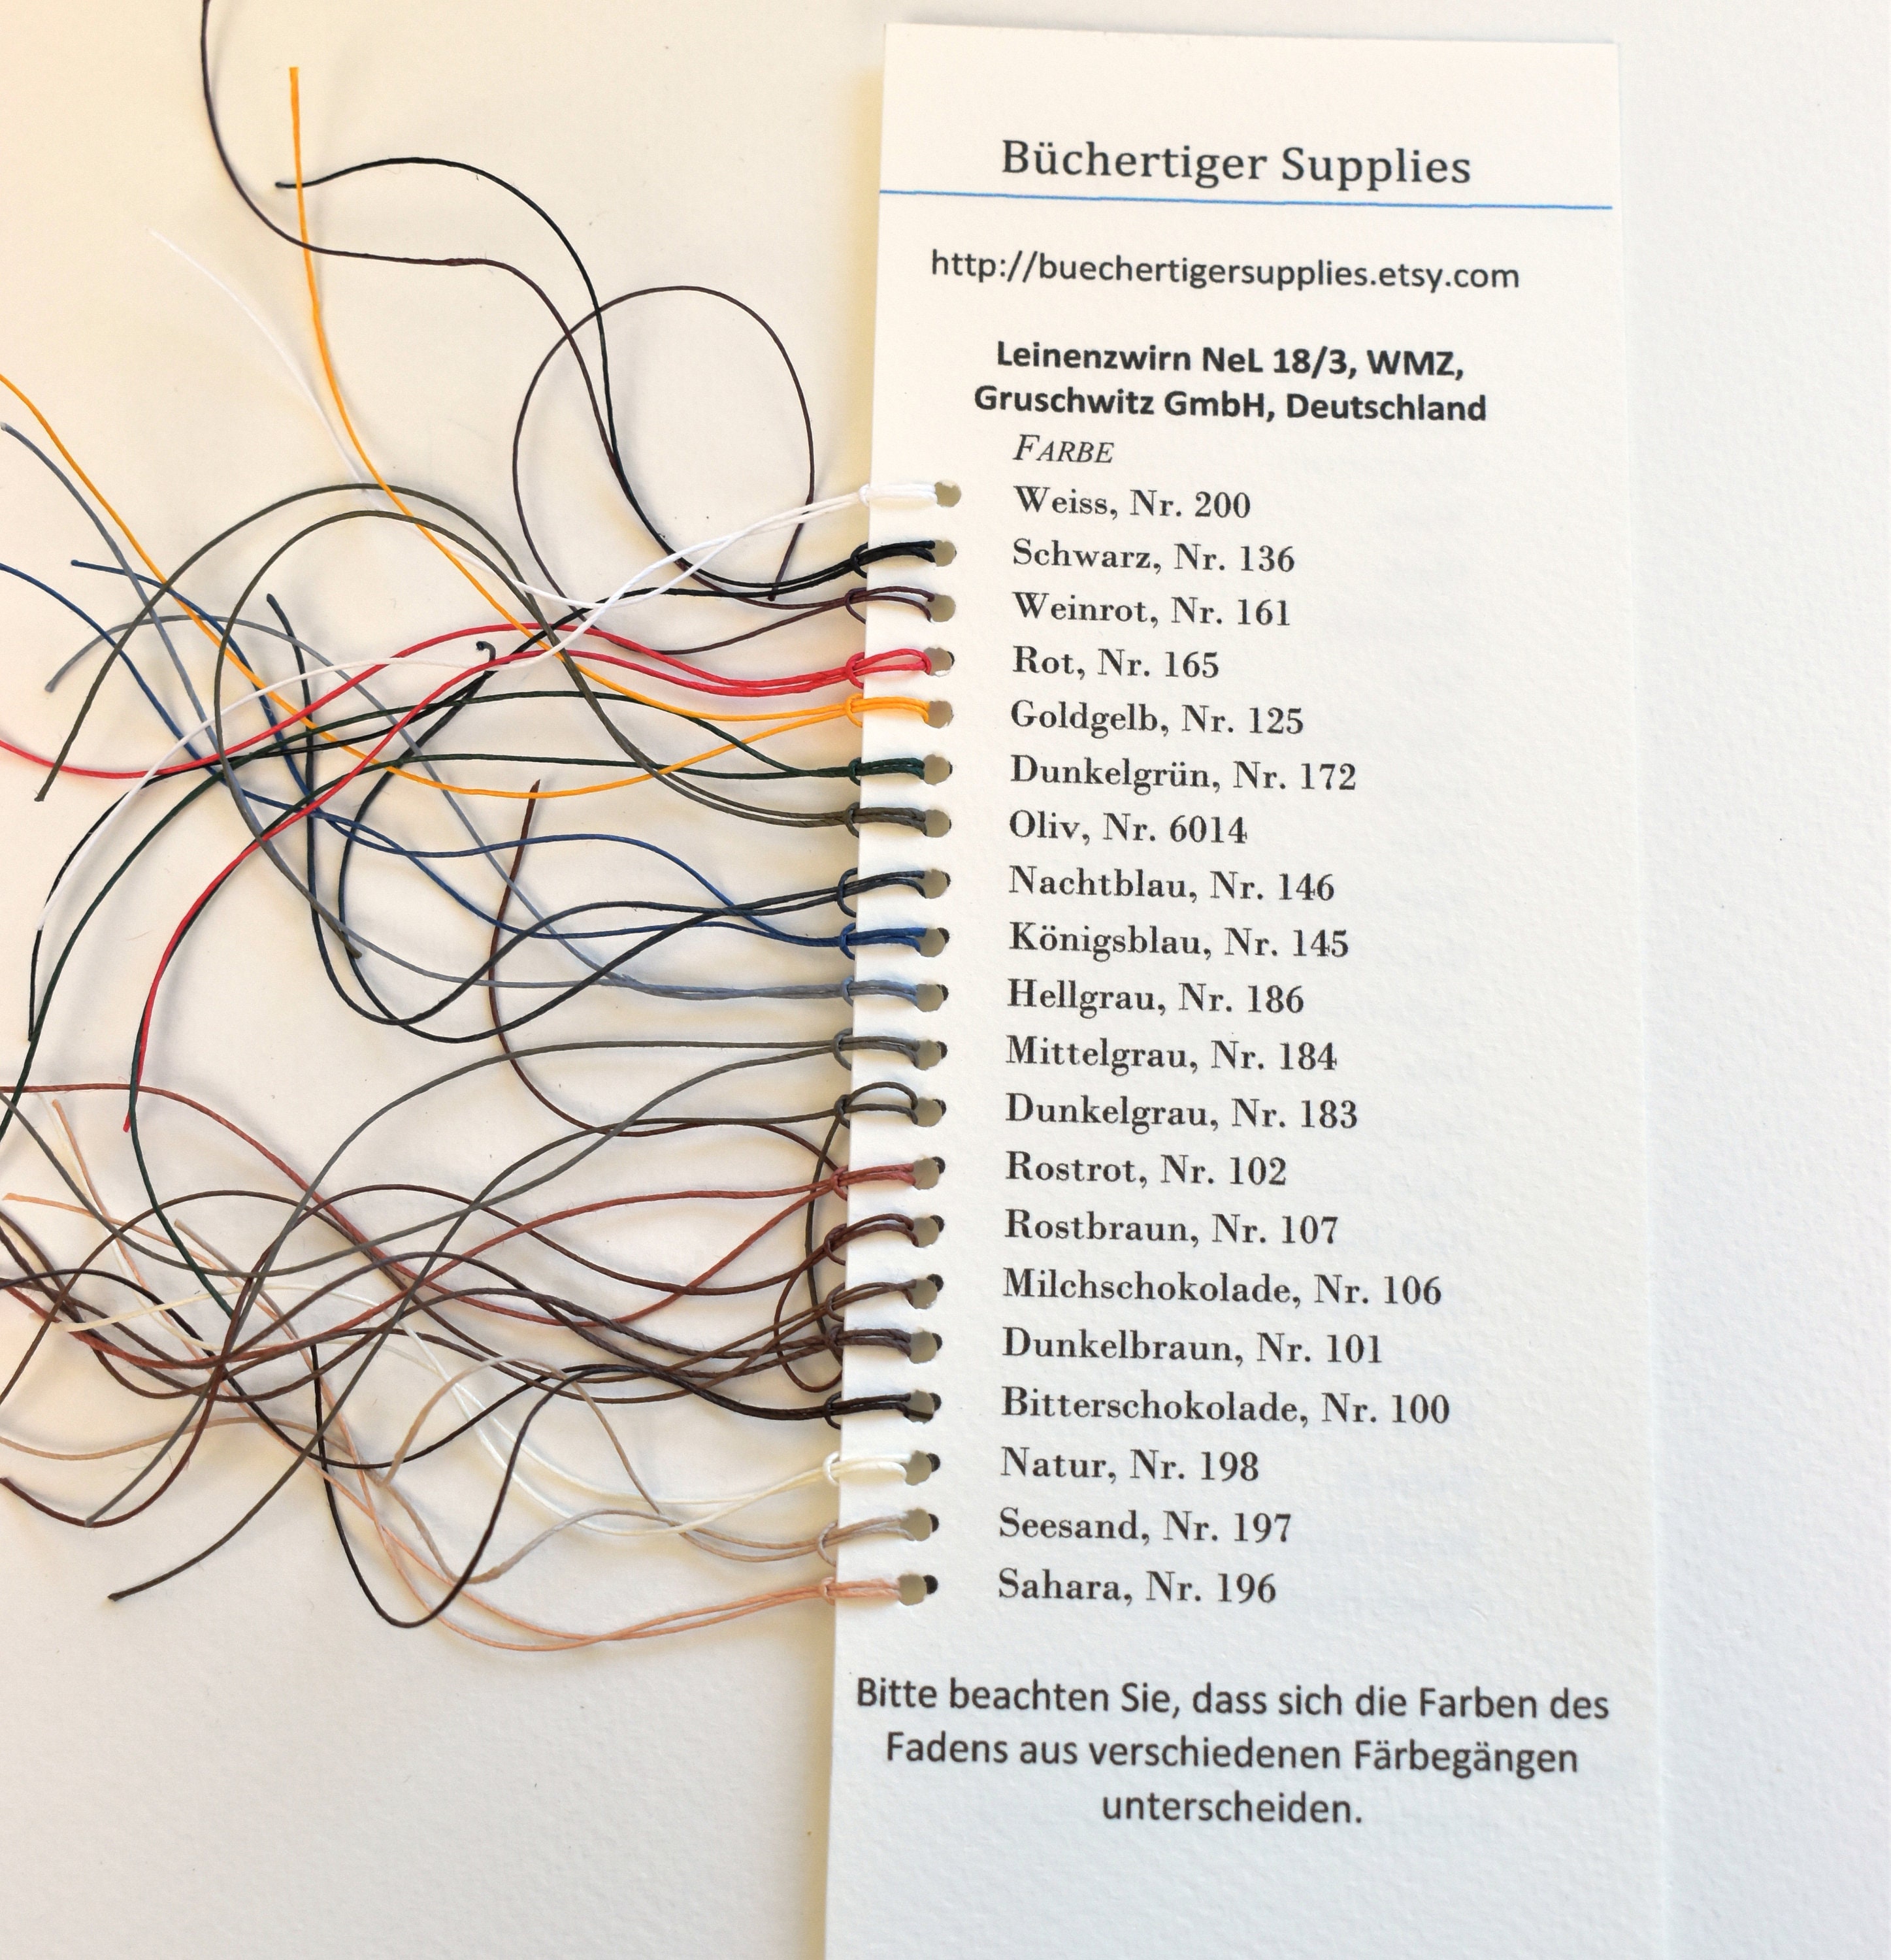 Büchertiger Supplies
http://buechertigersupplies.etsy.com
Leinenzwirn NeL 18/3, WMZ,
Gruschwitz GmbH, Deutschland
FARBE
Weiss, Nr. 200
Schwarz, Nr. 136
Weinrot, Nr. 161
Rot, Nr. 165
Goldgelb, Nr. 125
Dunkelgrün, Nr. 172
Oliv, Nr. 6014
Nachtblau, Nr. 146
Königsblau, Nr. 145
Hellgrau, Nr. 186
Mittelgrau, Nr. 184
Dunkelgrau, Nr. 183
Rostrot, Nr. 102
Rostbraun, Nr. 107
Milchschokolade, Nr. 106
Dunkelbraun, Nr. 101
Bitterschokolade, Nr. 100
Natur, Nr. 198
Seesand, Nr. 197
Sahara, Nr. 196
Bitte beachten Sie, dass sich die Farben des
Fadens aus verschiedenen Färbegängen
unterscheiden.